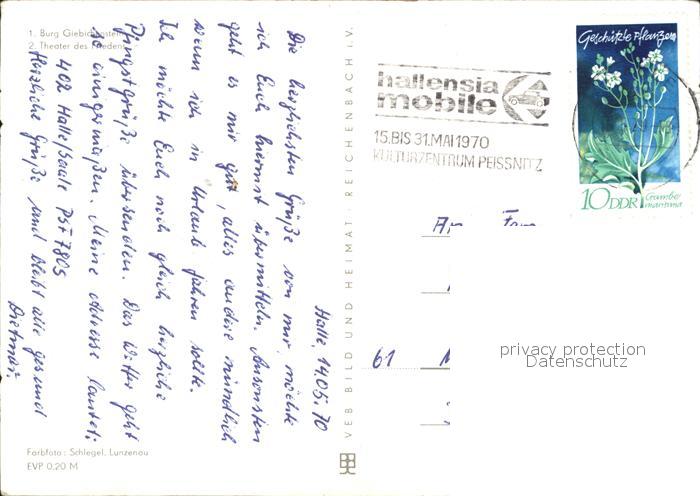 1. Burg Giebichenstein
2. Theater des Friedens
Halle, 14.05.70
Die herzlichsten Grüße von mir, möchte
ich Euch hiermit übermitteln. Ansonsten
geht es mir gut, alles andere mündlich
wenn ich in Urlaub fahren sollte.
Ich möchte Euch noch gleich herzliche
Pfingstgrüße übersenden. Das Wetter geht
so einigermaßen. Meine Adresse lautet:
402 Halle/Saale PSF 7805
Herzliche Grüße und bleibt alle gesund
Dietmar
Farbfoto: Schlegel, Lunzenau
EVP 0,20 M
VEB BILD UND HEIMAT REICHENBACH i.V.
hallensia
mobile
15.BIS 31.MAI 1970
KULTURZENTRUM PEISSNITZ
Geschützte Pflanzen
10 DDR Crambe
maritima
61
privacy protection
Datenschutz